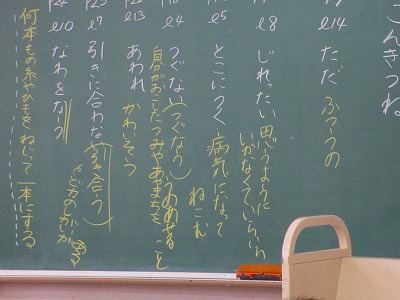 ごんぎつね
l14 ただ ふつうの
l8 じれったい 思うように いかなくていらいら
l5 とこにつく 病気になって ねこむ
l4 つぐない(つぐなう) うめあわせる
自分がおこたったつみやあやまちを こと
l13 あわれ かわいそう
p23 l7 引きに合わない(引き合う) どりょくのかいがある
p24 l10 なわをなう
何本もの糸やひもをねじって一本にする